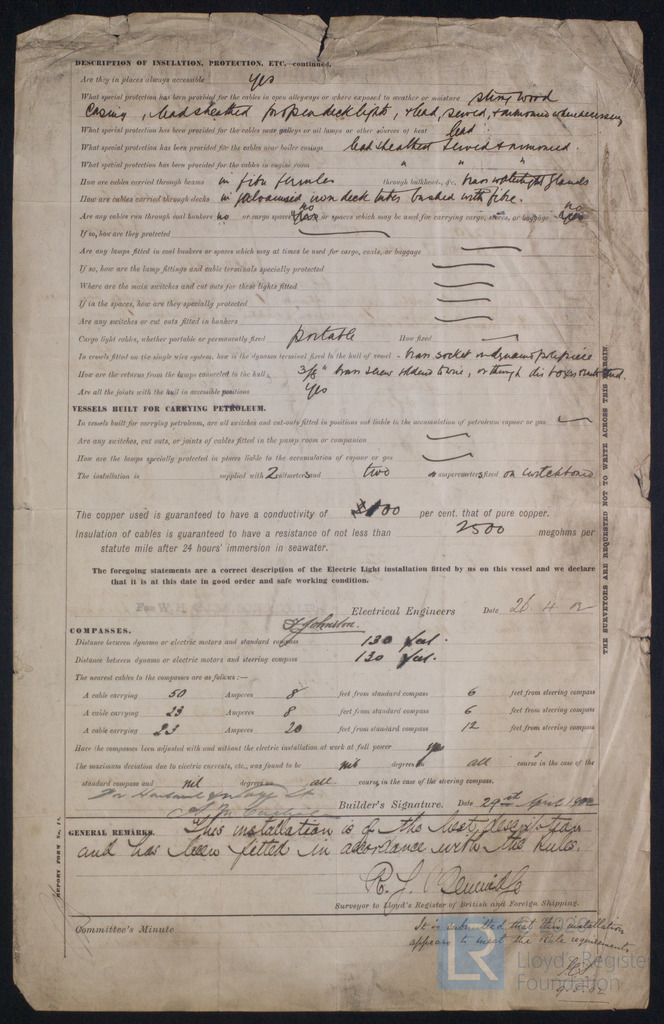 DESCRIPTION OF INSULATION, PROTECTION, ETC.—continued.
Are they in places always accessible yes
What special protection has been provided for the cables in open alleyways or where exposed to weather or moisture strong wood
casing, lead sheathed for open deck lights, & lead, served, & armoured where necessary
What special protection has been provided for the cables near galleys or oil lamps or other sources of heat lead
What special protection has been provided for the cables near boiler casings lead sheathed served & armoured.
What special protection has been provided for the cables in engine room " " "
How are cables carried through beams in fibre ferrules through bulkheads, &c. brass watertight glands
How are cables carried through decks in galvanised iron deck tubes bushed with fibre.
Are any cables run through coal bunkers no or cargo spaces no or spaces which may be used for carrying cargo, stores, or baggage no
If so, how are they protected
Are any lamps fitted in coal bunkers or spaces which may at times be used for cargo, coals, or baggage
If so, how are the lamp fittings and cable terminals specially protected
Where are the main switches and cut outs for these lights fitted
If in the spaces, how are they specially protected
Are any switches or cut outs fitted in bunkers
Cargo light cables, whether portable or permanently fixed portable How fixed
In vessels fitted on the single wire system, how is the dynamo terminal fixed to the hull of vessel brass socket on dynamo pole piece
How are the returns from the lamps connected to the hull 3/8" brass screw soldered to wire, or through dis boxes
Are all the joints with the hull in accessible positions Yes
VESSELS BUILT FOR CARRYING PETROLEUM.
In vessels built for carrying petroleum, are all switches and cut-outs fitted in positions not liable to the accumulation of petroleum vapour or gas
Are any switches, cut outs, or joints of cables fitted in the pump room or companion
How are the lamps specially protected in places liable to the accumulation of vapour or gas
The installation is supplied with 2 voltmeters and two amperemeters fixed on switchboard
The copper used is guaranteed to have a conductivity of 100 per cent. that of pure copper.
Insulation of cables is guaranteed to have a resistance of not less than 2500 megohms per
statute mile after 24 hours' immersion in seawater.
The foregoing statements are a correct description of the Electric Light installation fitted by us on this vessel and we declare
that it is at this date in good order and safe working condition.
Electrical Engineers Date 26 4 02
Johnston.
COMPASSES.
Distance between dynamo or electric motors and standard compass 130 feet.
Distance between dynamo or electric motors and steering compass 130 feet.
The nearest cables to the compasses are as follows:—
A cable carrying 50 Amperes 8 feet from standard compass 6 feet from steering compass
A cable carrying 23 Amperes 8 feet from standard compass 6 feet from steering compass
A cable carrying 23 Amperes 20 feet from standard compass 12 feet from steering compass
Have the compasses been adjusted with and without the electric installation at work at full power yes
The maximum deviation due to electric currents, etc., was found to be nil degrees on all courses in the case of the
standard compass and nil degrees on all courses, in the case of the steering compass.
For Harland & Wolff Ld
Builder's Signature. Date 29th April 1902
GENERAL REMARKS. This installation is of the best description
and has been fitted in accordance with the Rules.
Surveyor to Lloyd's Register of British and Foreign Shipping.
Committee's Minute
It is submitted that this installation
appears to meet the Rule requirements
9.5.02
THE SURVEYORS ARE REQUESTED NOT TO WRITE ACROSS THIS MARGIN.
REPORT FORM No. 14.
LR
© 2020
Lloyd's Register
Foundation